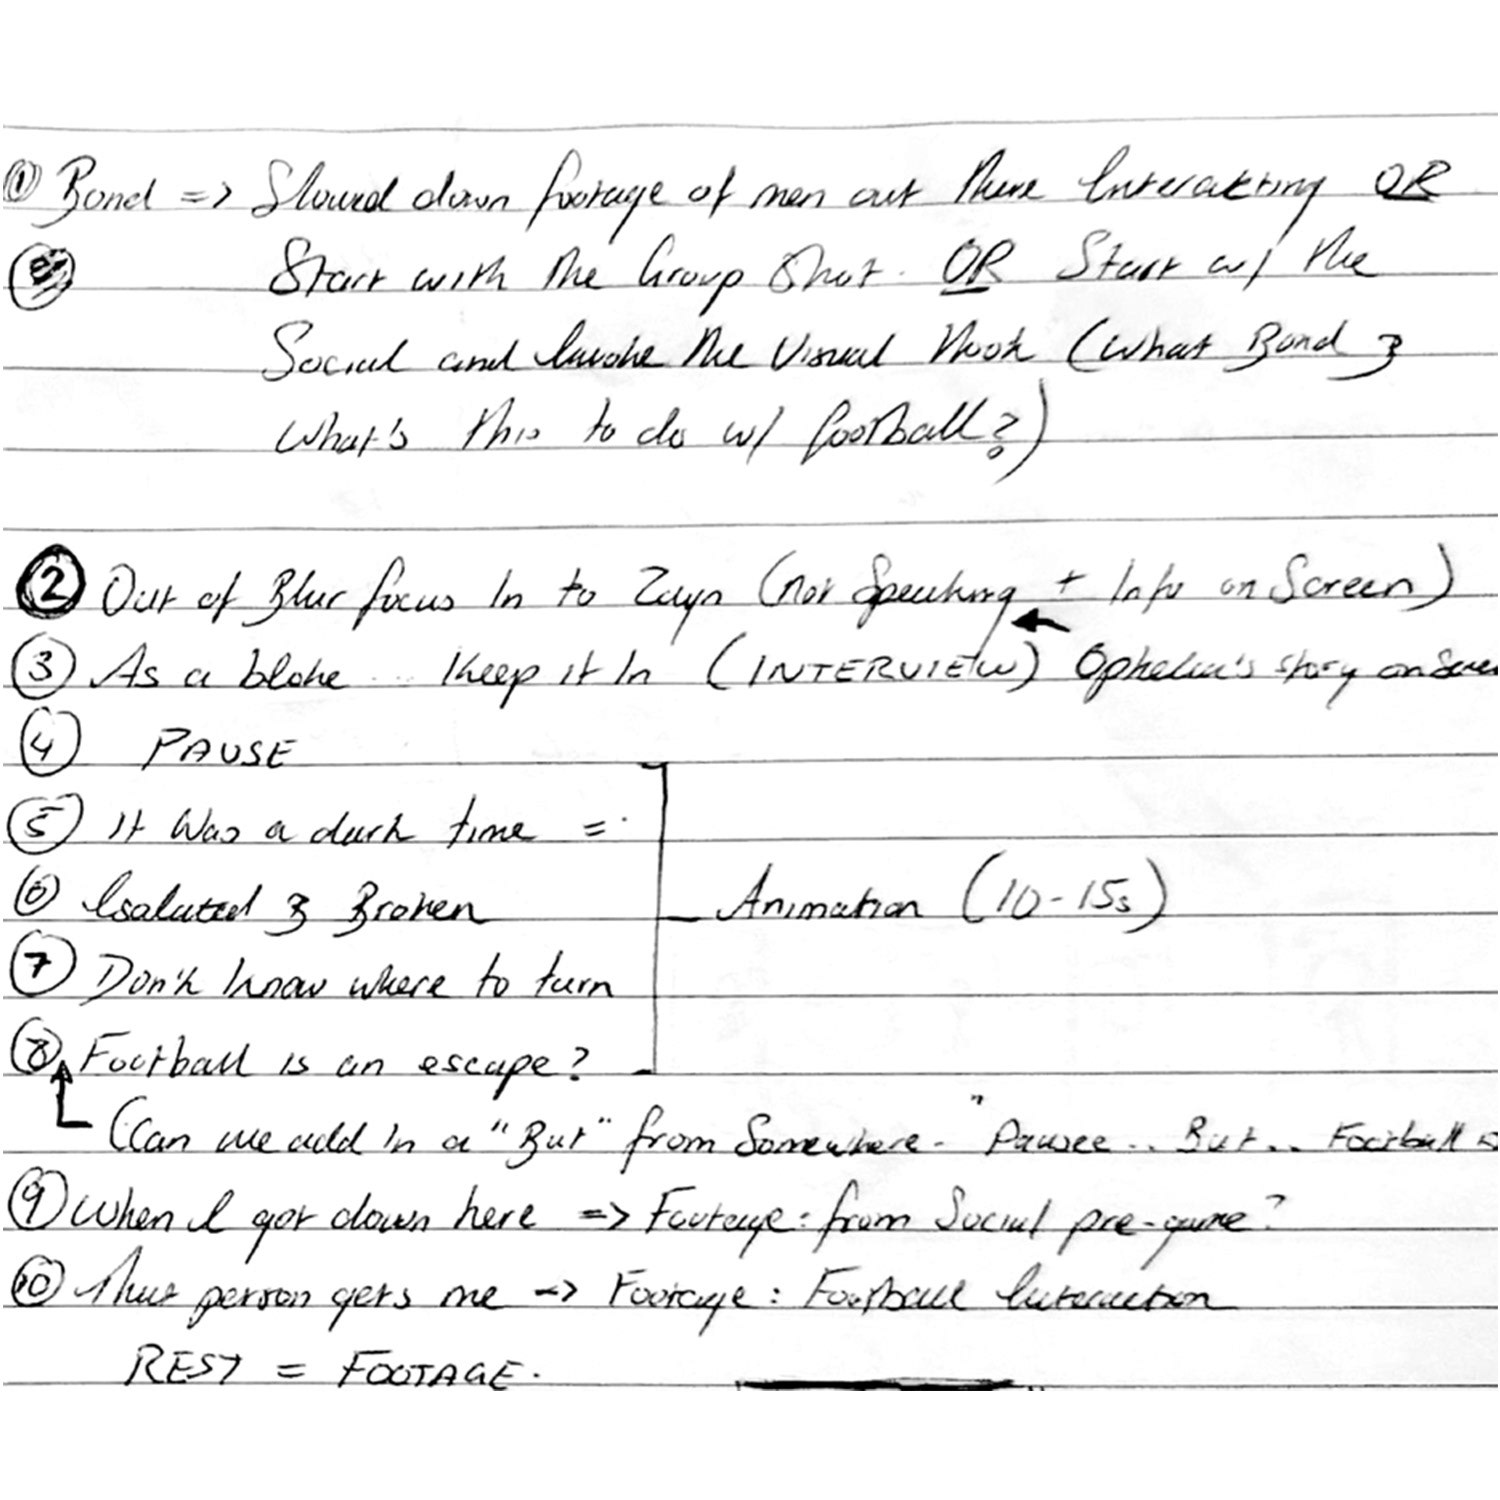 ① Bond => Slowed down footage of men out there Interacting OR
Start with the Group Shot. OR Start w/ the
Social and Invoke the Visual Hook (What Bond &
What's this to do w/ football?)
② Out of Blur focus In to Zayn (not Speaking + Info on Screen)
③ As a bloke ... Keep it In (INTERVIEW) Ophelia's story on Screen
④ PAUSE
⑤ It Was a dark time =
⑥ Isolated & Broken
Animation (10-15s)
⑦ Don't know where to turn
⑧ Football is an escape?
(Can we add in a "But" from Somewhere - "Pause .. But .. Football is
⑨ When I got down here => Footage: from Social pre-game?
⑩ That person gets me => Footage: Football Interaction
REST = FOOTAGE.